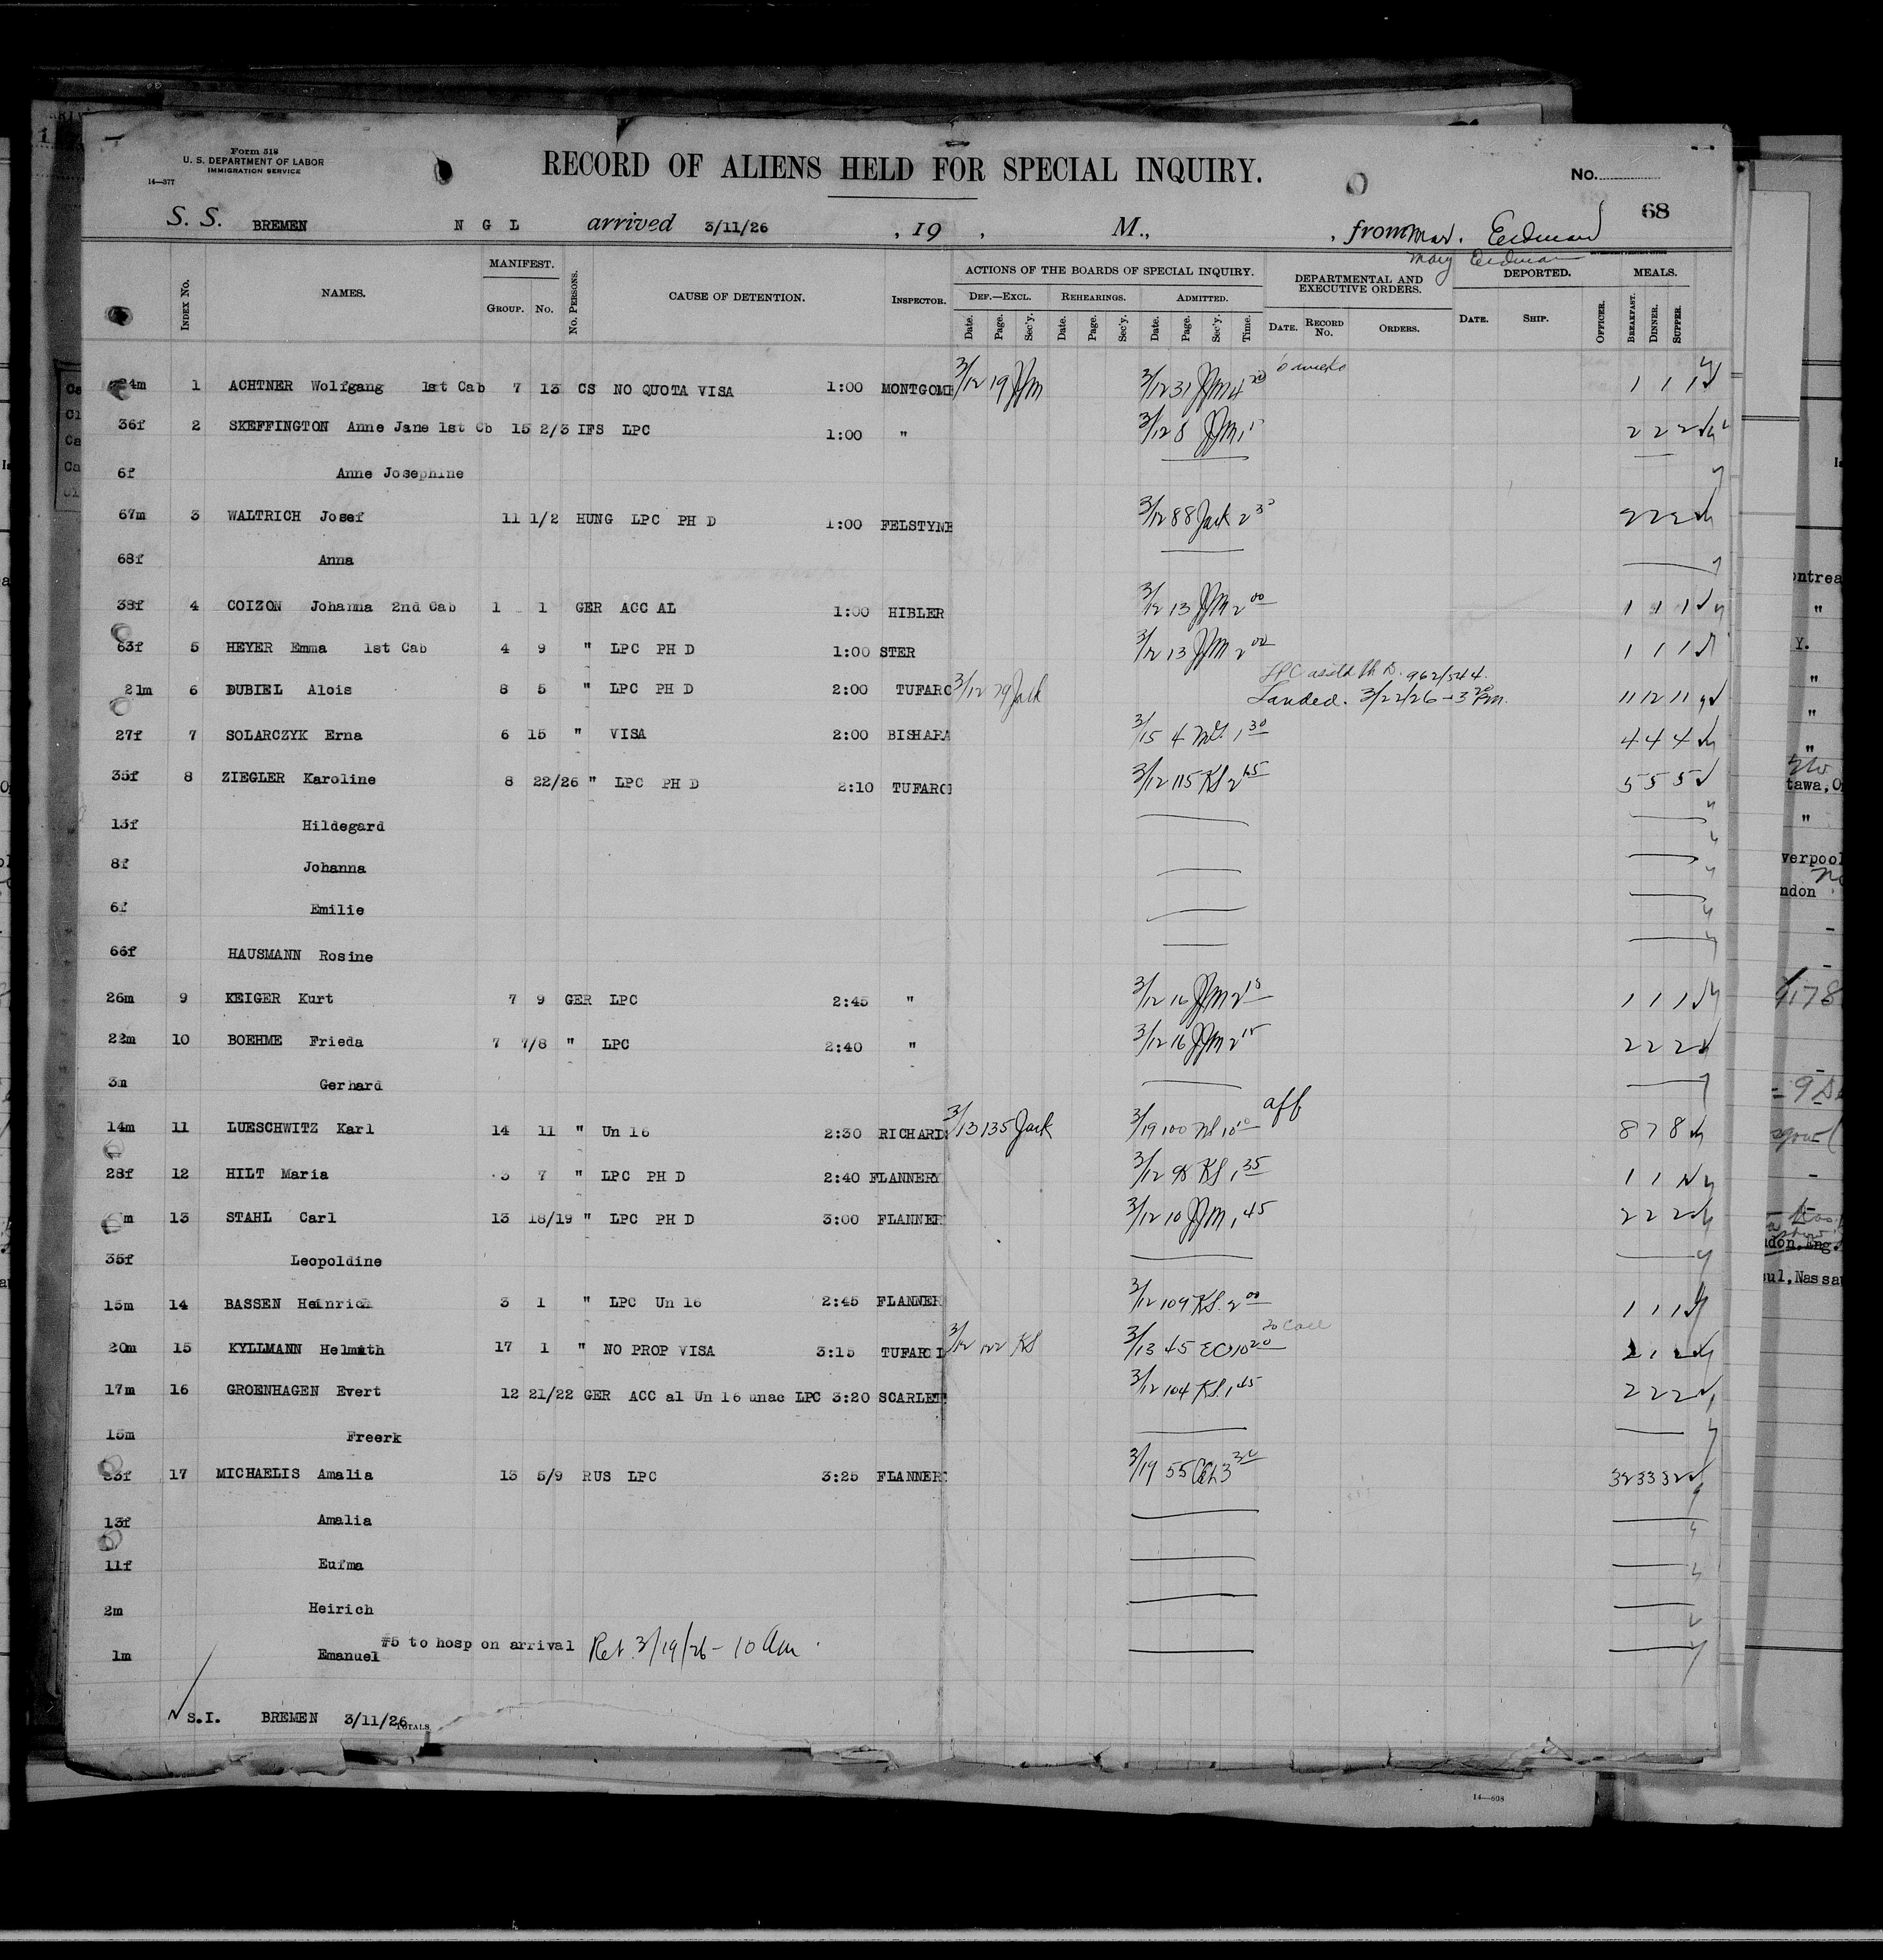 Form 518
U. S. DEPARTMENT OF LABOR
IMMIGRATION SERVICE
14—377
RECORD OF ALIENS HELD FOR SPECIAL INQUIRY.
No.
68
S. S. BREMEN N G L arrived 3/11/26 , 19 , M., , from Mar. Eedman
Mary Eedman
INDEX No. NAMES. MANIFEST. GROUP. No. No. PERSONS. CAUSE OF DETENTION. INSPECTOR. ACTIONS OF THE BOARDS OF SPECIAL INQUIRY. DEPARTMENTAL AND EXECUTIVE ORDERS. DEPORTED. MEALS.
DEF.—EXCL. REHEARINGS. ADMITTED.
Date. Page. Sec'y. Date. Page. Sec'y. Date. Page. Sec'y. Time. DATE. RECORD No. ORDERS. DATE. SHIP. OFFICER. BREAKFAST. DINNER. SUPPER.
6 weeks
24m 1 ACHTNER Wolfgang 1st Cab 7 13 CS NO QUOTA VISA 1:00 MONTGOME 3/12 19 JJM 3/12 31 JJM 4 20 1 1 1
36f 2 SKEFFINGTON Anne Jane 1st Cb 15 2/3 IFS LPC 1:00 " 3/12 8 JJM 1 2 2 2
6f Anne Josephine
67m 3 WALTRICH Josef 11 1/2 HUNG LPC PH D 1:00 FELSTYNE 3/12 88 Jack 2 30 2 2 2
68f Anna
38f 4 COIZON Johanna 2nd Cab 1 1 GER ACC AL 1:00 HIBLER 3/12 13 JJM 2 00 1 1 1
63f 5 HEYER Emma 1st Cab 4 9 " LPC PH D 1:00 STER 3/12 13 JJM 2 00 1 1 1
LPC asstd Ph D. 962/544.
21m 6 DUBIEL Alois 8 5 " LPC PH D 2:00 TUFARO 3/12 79 Jack Landed. 3/22/26 - 3 20 Pm. 11 12 11
27f 7 SOLARCZYK Erna 6 15 " VISA 2:00 BISHARA 3/15 4 1 30 4 4 4
35f 8 ZIEGLER Karoline 8 22/26 " LPC PH D 2:10 TUFARO 3/12 115 KS 2 45 5 5 5
13f Hildegard
8f Johanna
6f Emilie
66f HAUSMANN Rosine
26m 9 KEIGER Kurt 7 9 GER LPC 2:45 " 3/12 16 JJM 2 15 1 1 1
22m 10 BOEHME Frieda 7 7/8 " LPC 2:40 " 3/12 16 JJM 2 15 2 2 2
3m Gerhard
14m 11 LUESCHWITZ Karl 14 11 " Un 16 2:30 RICHARD 3/13 135 Jack 3/19 100 10 10 aff 8 7 8
28f 12 HILT Maria 3 7 " LPC PH D 2:40 FLANNERY 3/12 98 KS 1 35 1 1
m 13 STAHL Carl 13 18/19 " LPC PH D 3:00 FLANNER 3/12 10 JJM 1 45 2 2 2
35f Leopoldine
15m 14 BASSEN Heinrich 3 1 " LPC Un 16 2:45 FLANNER 3/12 109 KS. 2 00 1 1 1
20m 15 KYLLMANN Helmuth 17 1 " NO PROP VISA 3:15 TUFARO 3/12 122 KS 3/13 45 EC 10 20 to Call 2 1 2
17m 16 GROENHAGEN Evert 12 21/22 GER ACC al Un 16 unac LPC 3:20 SCARLET 3/12 104 KS. 1 45 2 2 2
15m Freerk
33f 17 MICHAELIS Amalia 13 5/9 RUS LPC 3:25 FLANNER 3/19 55 3 30 32 33 32
13f Amalia
11f Eufma
2m Heirich
1m Emanuel #5 to hosp on arrival Ret. 3/19/26 - 10 am
S.I. BREMEN 3/11/26 TOTALS
ontrea
"
Y.
"
"
"
tawa, O
"
verpool
ndon
9178
don, Eng.
ul, Nassau
14—608